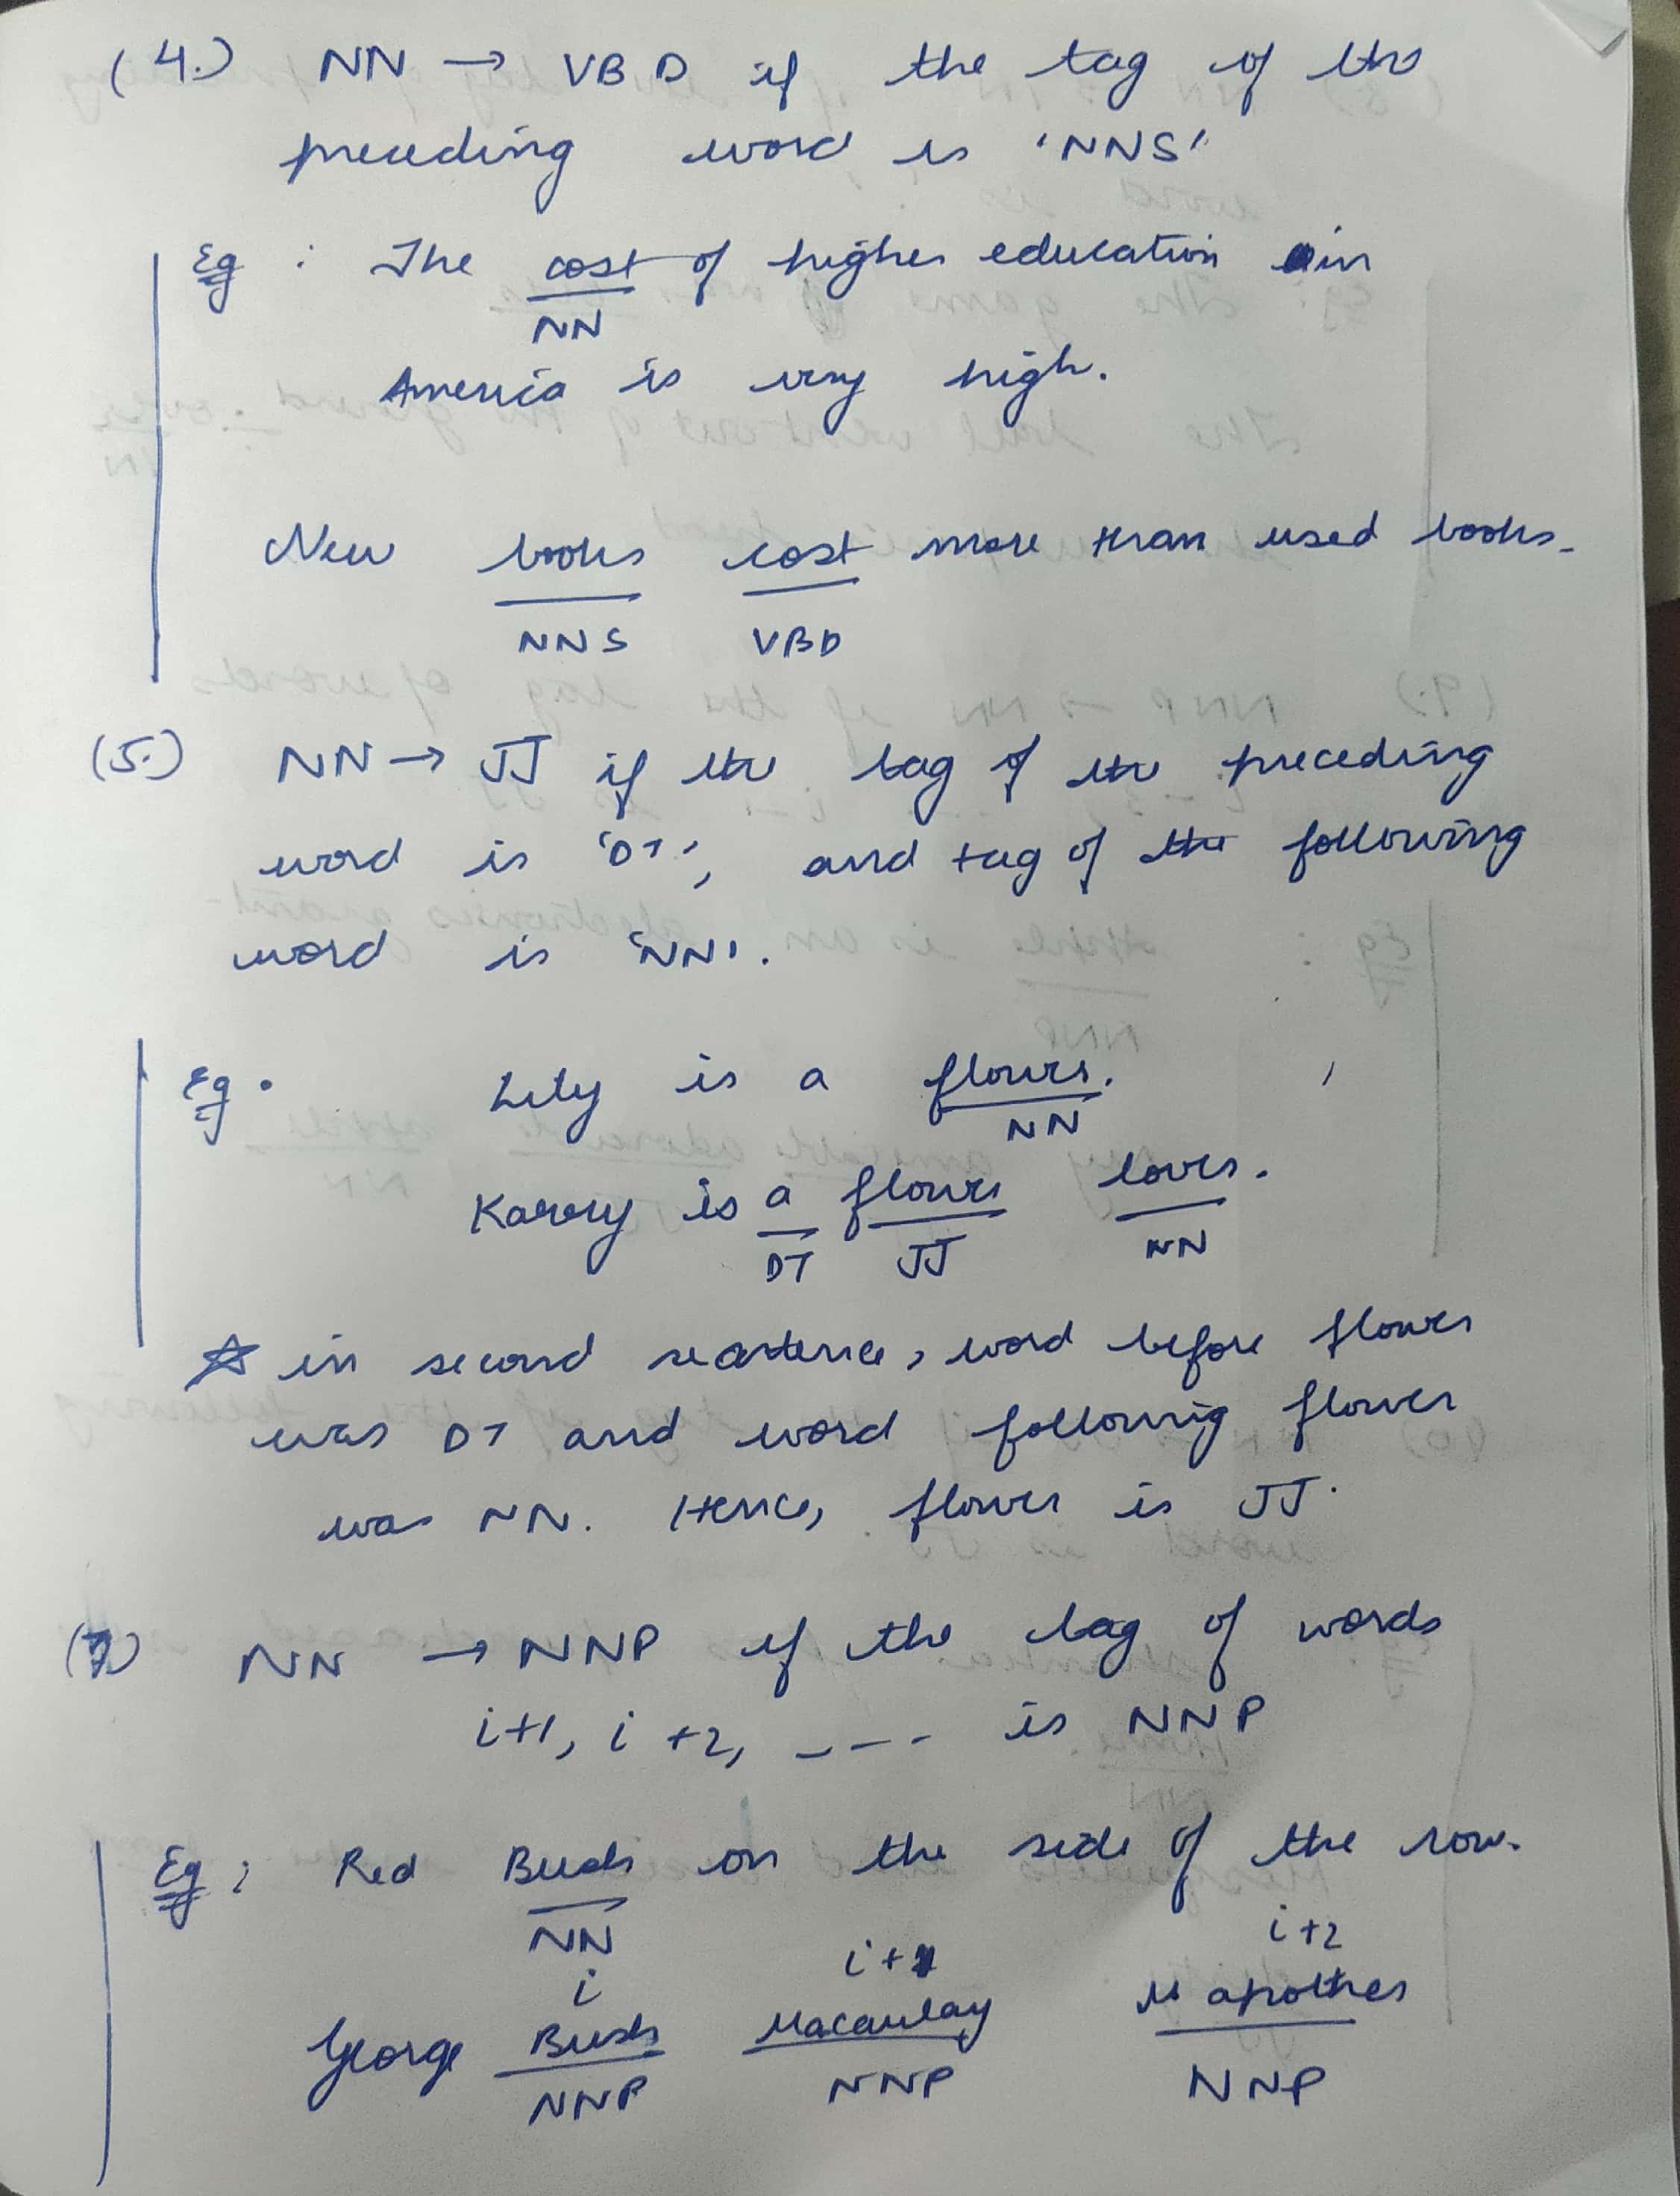 (4.) NN → VBD if the tag of the
preceding word is 'NNS'
Eg : The cost of higher education in
NN
America is very high.
New books cost more than used books.
NNS VBD
(5.) NN → JJ if the tag of the preceding
word is 'DT', and tag of the following
word is 'NN'.
Eg. Lily is a flower.
NN
Karry is a flower lover.
DT JJ NN
☆ in second sentence, word before flower
was DT and word following flower
was NN. Hence, flower is JJ.
(7) NN → NNP if the tag of words
i+1, i+2, ---- is NNP
Eg : Red Buds on the side of the row.
NN
i i+1 i+2
George Macaulay
NNP NNP NNP